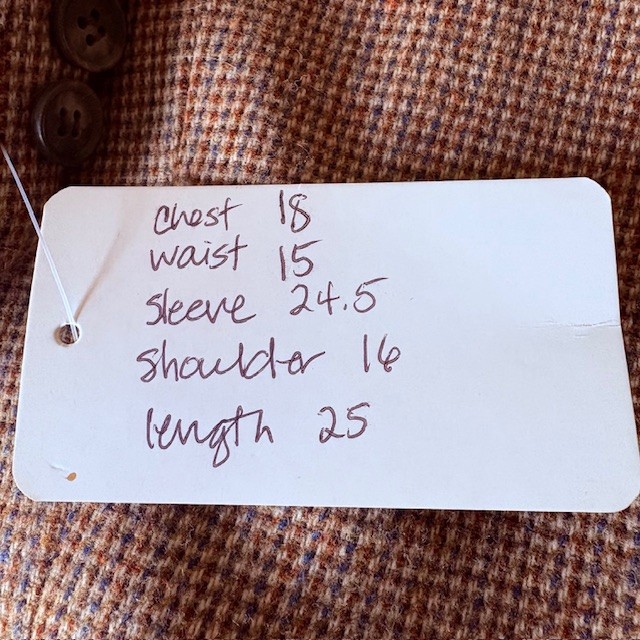 chest 18
waist 15
sleeve 24.5
shoulder 16
length 25